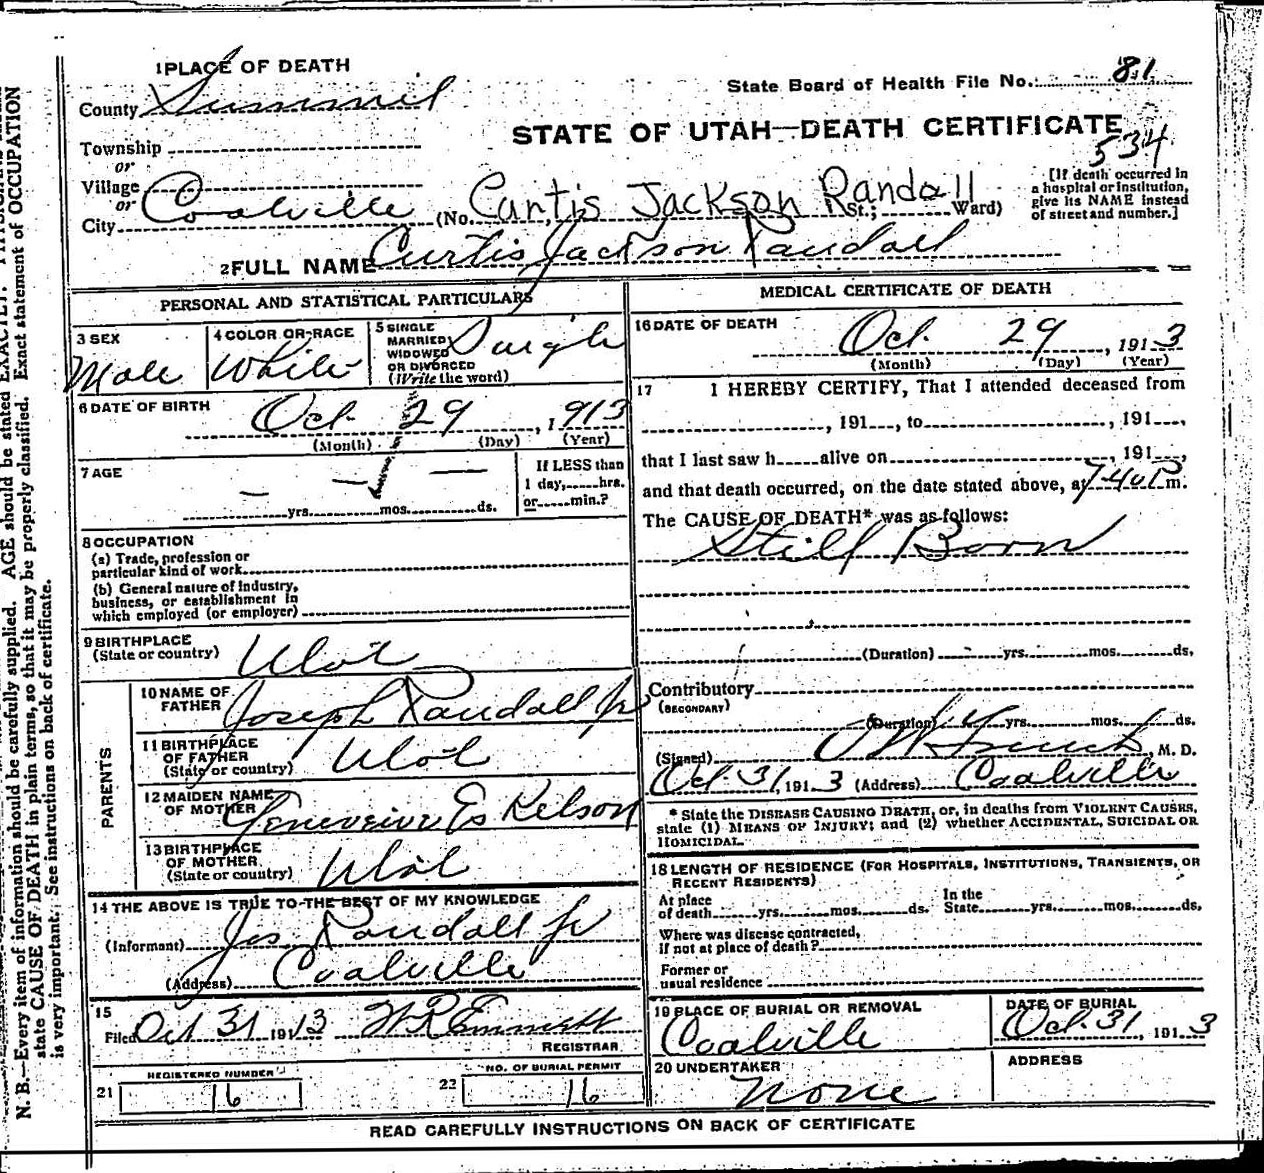 1 PLACE OF DEATH
State Board of Health File No. 81
County Summit
STATE OF UTAH—DEATH CERTIFICATE
534
Township
or
Village
or
City Coalville (No. Curtis Jackson Randall St.; Ward)
[If death occurred in a hospital or institution, give its NAME instead of street and number.]
2 FULL NAME Curtis Jackson Randall
PERSONAL AND STATISTICAL PARTICULARS
3 SEX
Male
4 COLOR OR RACE
White
5 SINGLE MARRIED WIDOWED OR DIVORCED (Write the word)
Single
6 DATE OF BIRTH
Oct. 29, 1913
(Month) (Day) (Year)
7 AGE
— — —
yrs. mos. ds.
If LESS than
1 day, hrs.
or min.?
8 OCCUPATION
(a) Trade, profession or
particular kind of work
(b) General nature of industry,
business, or establishment in
which employed (or employer)
9 BIRTHPLACE
(State or country) Utah
PARENTS
10 NAME OF FATHER Joseph Randall Jr
11 BIRTHPLACE OF FATHER (State or country) Utah
12 MAIDEN NAME OF MOTHER Geneveive Es Kelson
13 BIRTHPLACE OF MOTHER (State or country) Utah
14 THE ABOVE IS TRUE TO THE BEST OF MY KNOWLEDGE
(Informant) Jos Randall Jr
(Address) Coalville
15
Filed Oct 31 1913 W R Emmett
REGISTRAR
REGISTERED NUMBER
21 16
NO. OF BURIAL PERMIT
22 16
MEDICAL CERTIFICATE OF DEATH
16 DATE OF DEATH
Oct. 29, 1913
(Month) (Day) (Year)
17 I HEREBY CERTIFY, That I attended deceased from
, 191 , to , 191 ,
that I last saw h alive on , 191 ,
and that death occurred, on the date stated above, at 7-40 P m.
The CAUSE OF DEATH* was as follows:
Still Born
(Duration) yrs. mos. ds.
Contributory
(SECONDARY)
(Duration) yrs. mos. ds.
(Signed) , M. D.
Oct 31, 1913 (Address) Coalville
* State the DISEASE CAUSING DEATH, or, in deaths from VIOLENT CAUSES,
state (1) MEANS OF INJURY; and (2) whether ACCIDENTAL, SUICIDAL OR
HOMICIDAL.
18 LENGTH OF RESIDENCE (FOR HOSPITALS, INSTITUTIONS, TRANSIENTS, OR
RECENT RESIDENTS)
At place of death yrs. mos. ds. In the State yrs. mos. ds.
Where was disease contracted,
if not at place of death?
Former or
usual residence
19 PLACE OF BURIAL OR REMOVAL
Coalville
DATE OF BURIAL
Oct. 31, 1913
20 UNDERTAKER
None
ADDRESS
READ CAREFULLY INSTRUCTIONS ON BACK OF CERTIFICATE
N. B.—Every item of information should be carefully supplied. AGE should be stated EXACTLY.
state CAUSE OF DEATH in plain terms, so that it may be properly classified. Exact statement of OCCUPATION
is very important. See instructions on back of certificate.